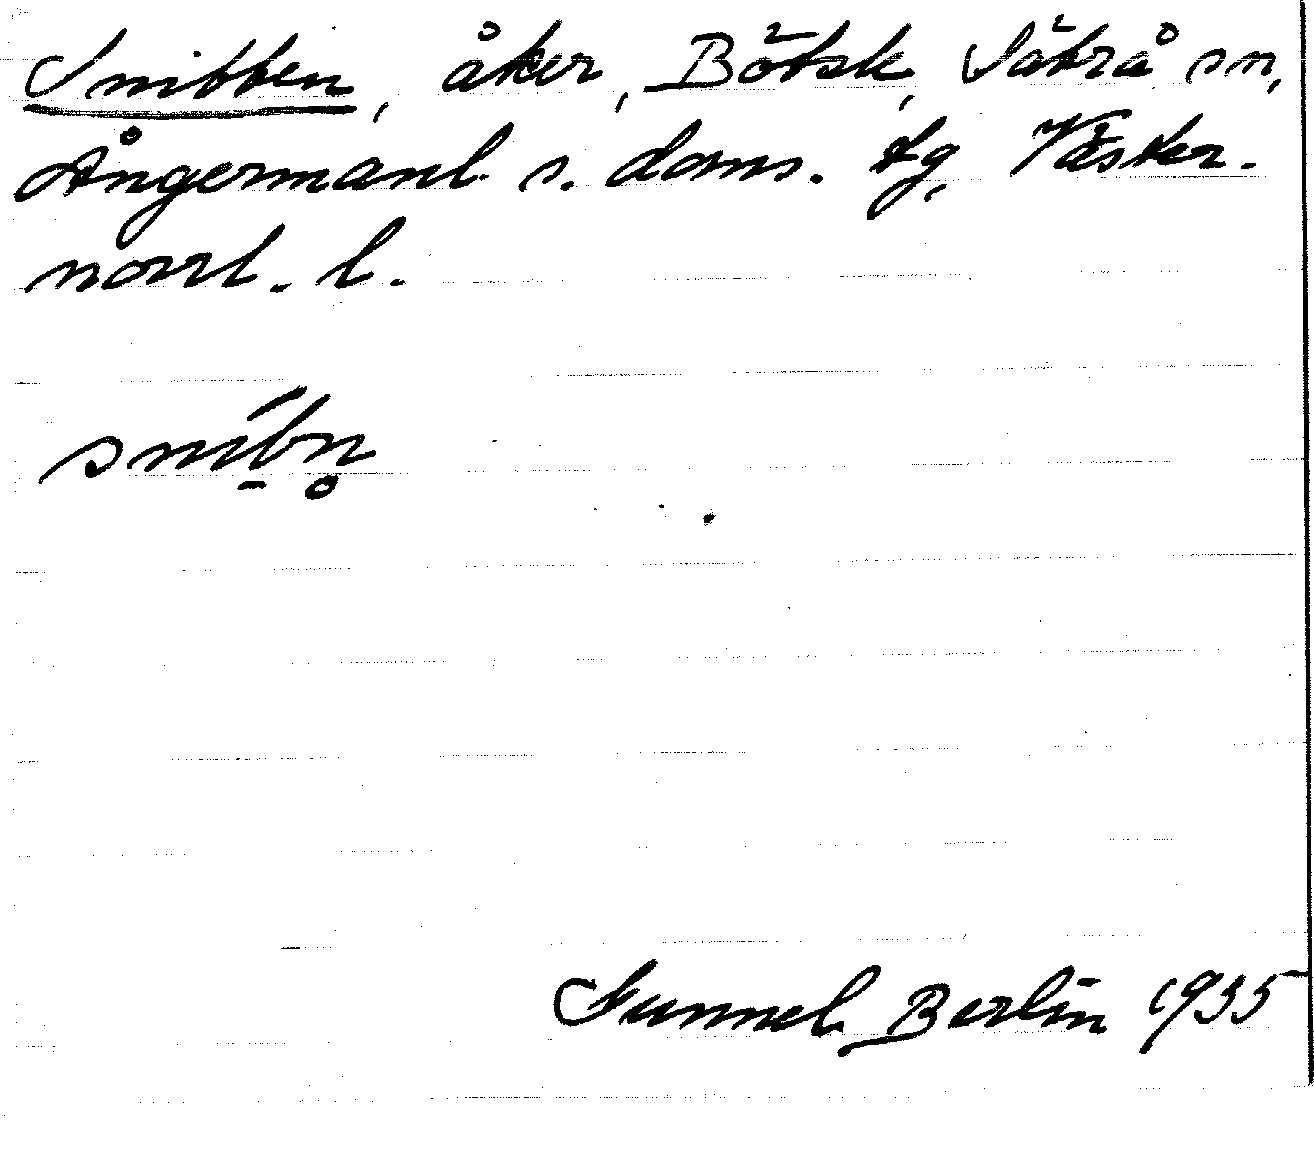 Snibben, åker, Bötsk, Säbrå sn,
Ångermanl. s. doms. tg, Väster-
norrl. l.
snib̲n̥
Gunnel Berlin 1935